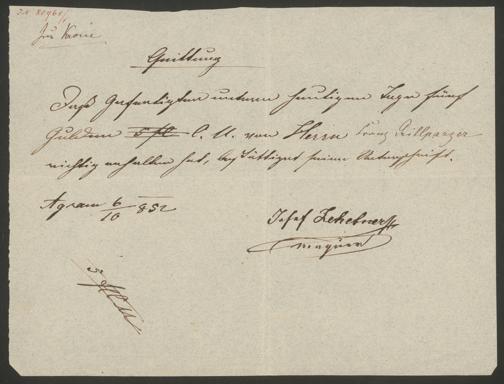 Zur Krone
Quittung
Daß Gefertigter unterm heutigen Tage fünf
Gulden 5 fl C. M. von Herrn Franz Grillparzer
richtig erhalten hat, bestättiget seine Unterschrift.
Agram 6/10 852
Josef
5 fl CM